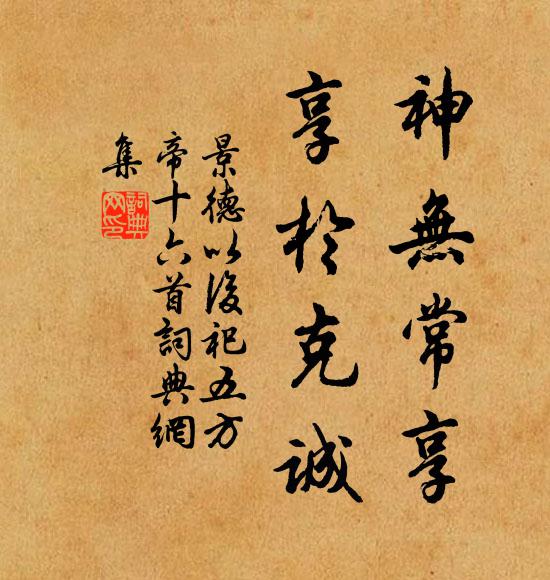 神無常享
享於克誠
景德以後祀五方
帝十六首詞典網
集
詞典
网印